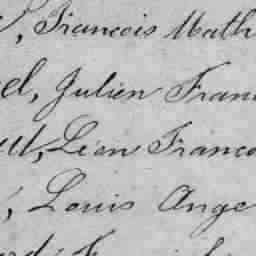 , François Math
el, Julien Fran
ut, Léon Franco
, Louis Ange